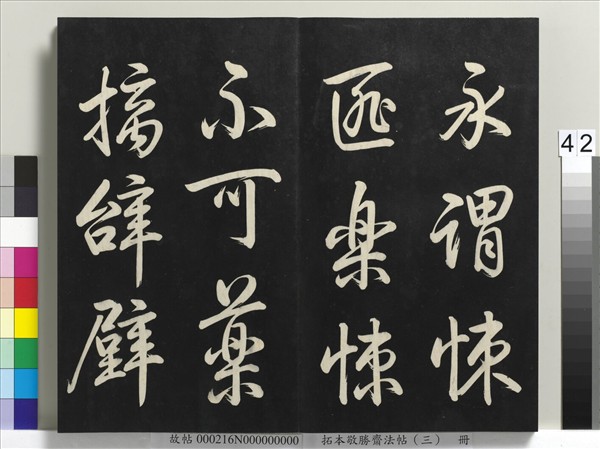 永謂悚
匪樂悚
不可藥
摛辝辟
42
故帖 000216N000000000 拓本敬勝齋法帖（三） 冊